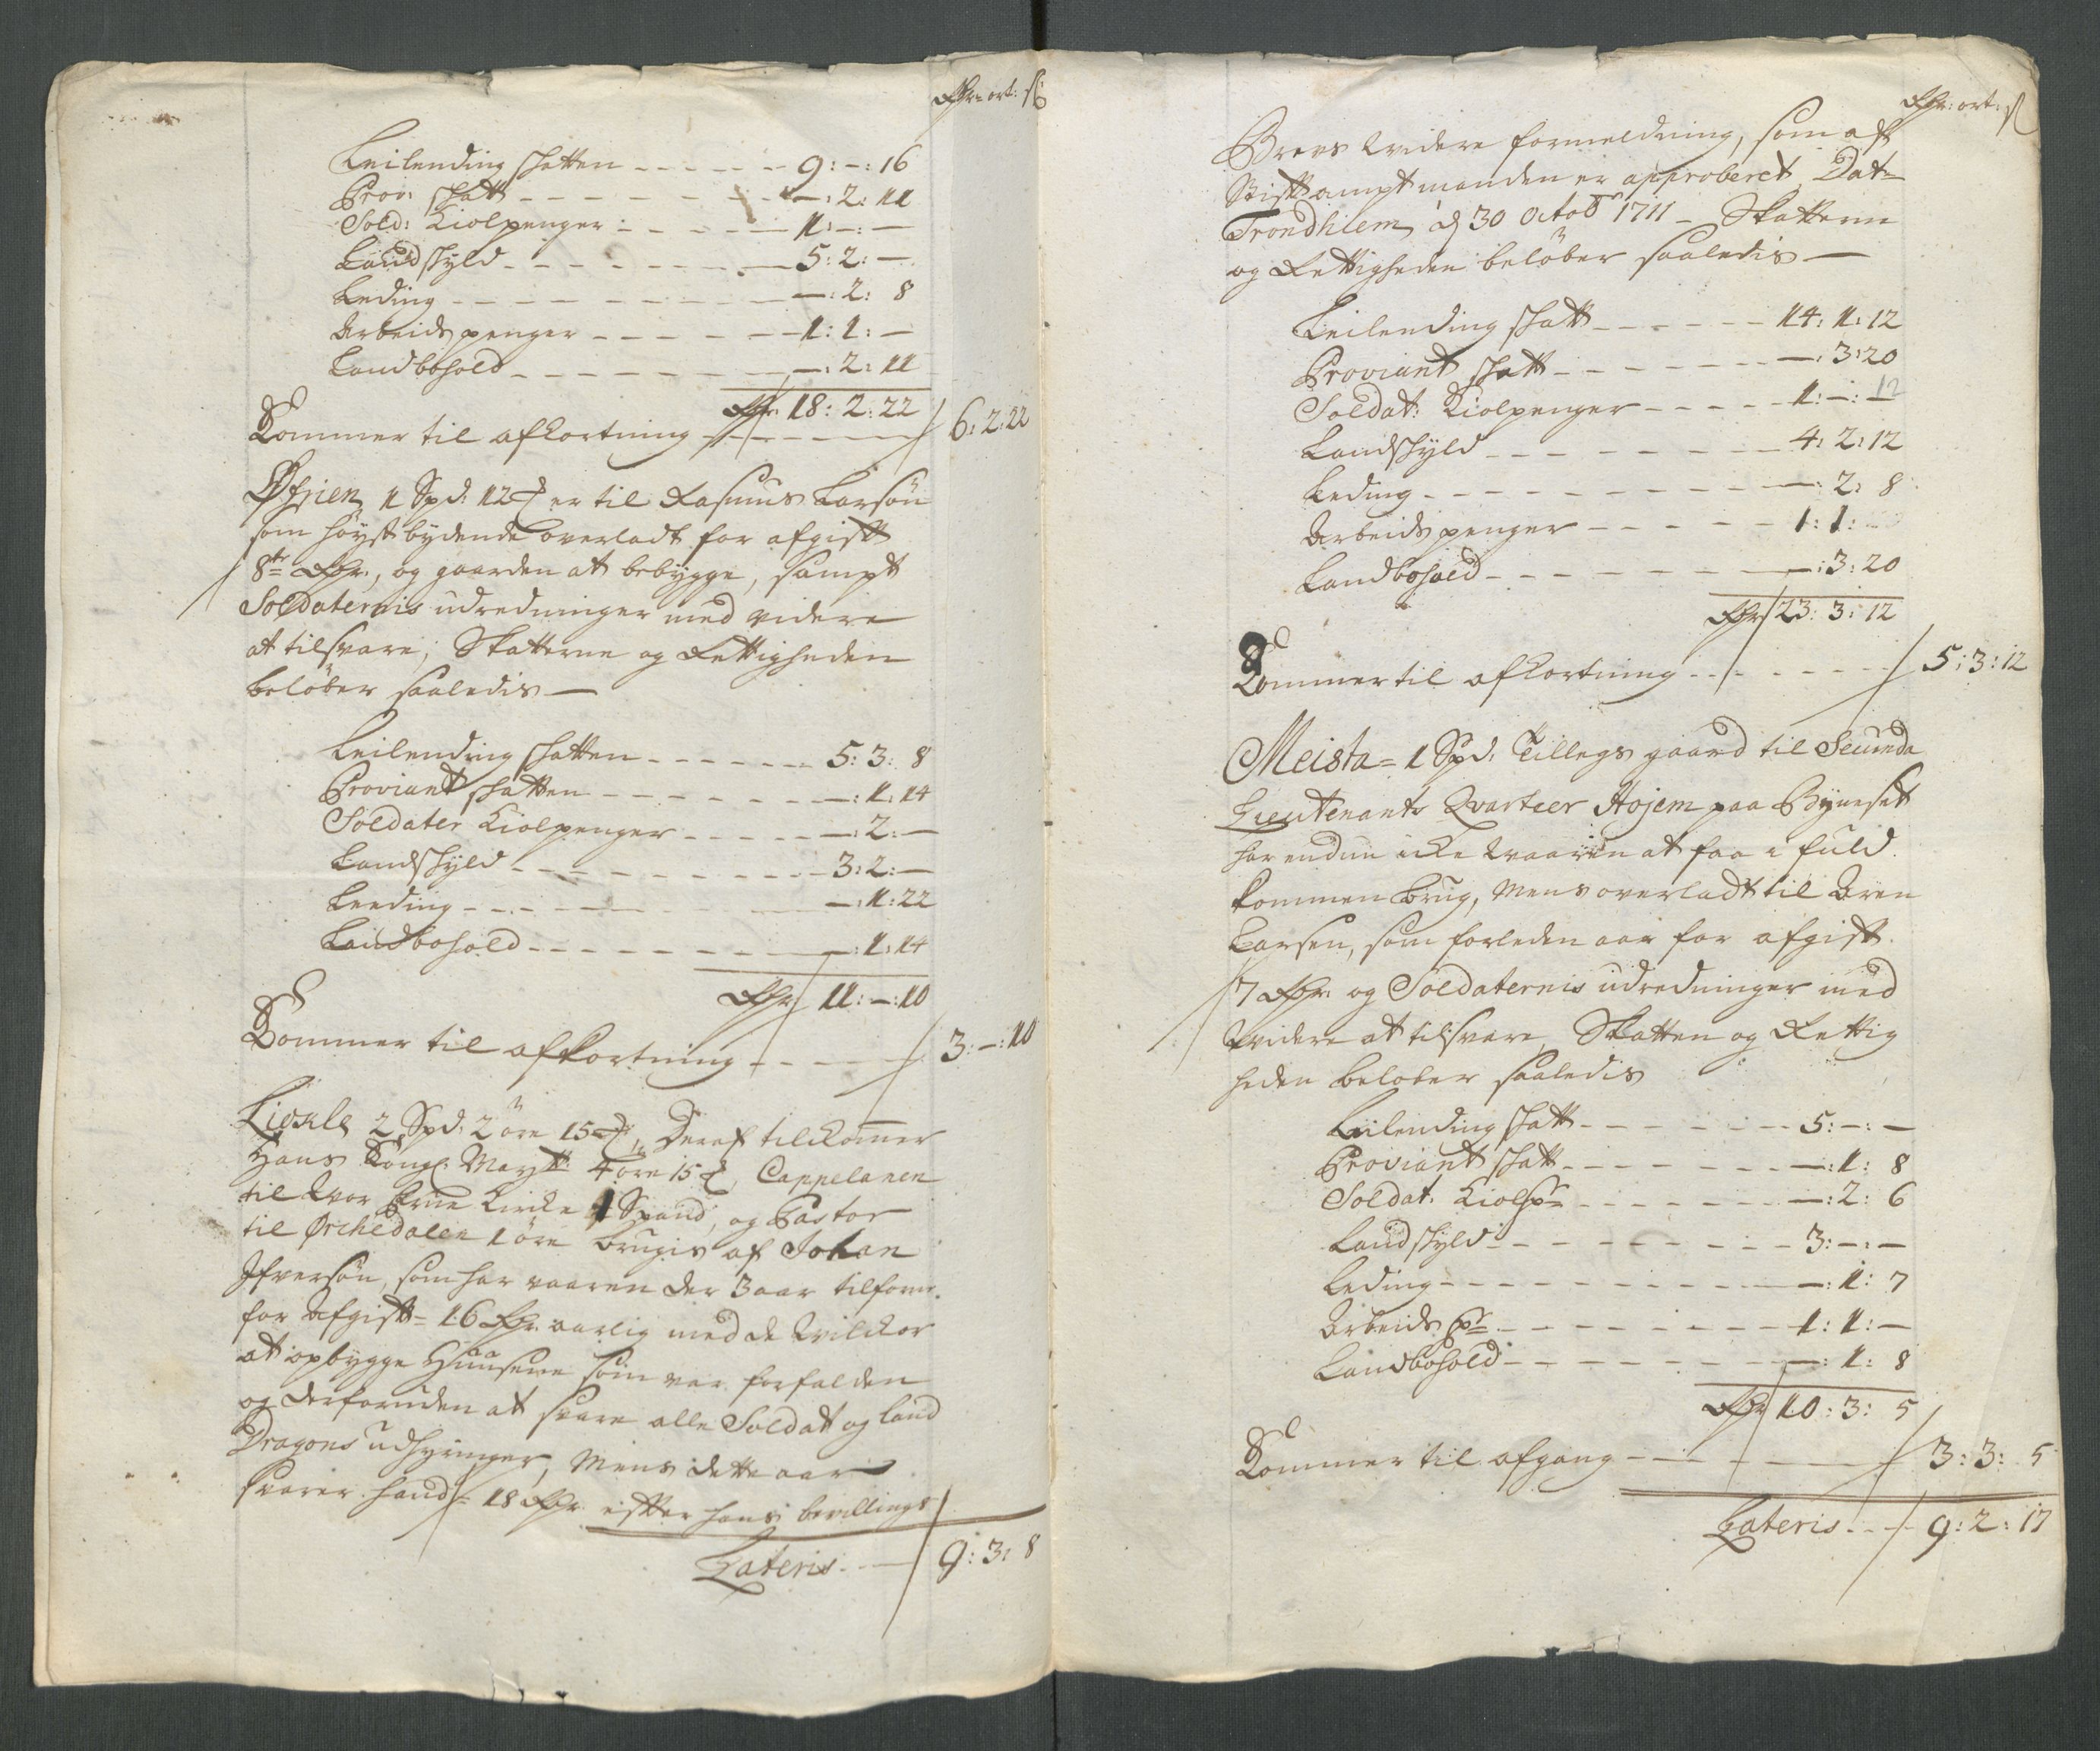 Rdr: ort: s
Leilending skatten - - - - - 9: –: 16
Prov: skatt - - - - - - –: 2: 11
Sold: Kiolpenger - - - - 1: –: –
Landskyld - - - - - - 5: 2: –
Leding - - - - - - –: 2: 8
Arbeids penger - - - - - 1: 1: –
Landbohold - - - - - –: 2: 11
Rdr 18: 2: 22
Kommer til afkortning - - - - 6: 2: 22
Øfsien 1 Spd: 12 er til Rasmus Larsøn
som høystbydende overladt for afgift
8te Rdr, og gaarden at bebygge, sampt
Soldaternis udredninger med videre
at tilsvare; Skatterne og Rettigheden
beløber saaledis –
Leilending skatten - - - - - 5: 3: 8
Proviant skatten - - - - - –: 1: 14
Soldater Kiolpenger - - - - –: 2: –
Landskyld - - - - - - 3: 2: –
Leeding - - - - - - –: 1: 22
Landbohold - - - - - –: 1: 14
Rdr 11: –: 10
Kommer til afkortning - - - - 3: –: 10
2 Spd: 2 øre 15, Deraf tilkommer
Hans Kongl: Mayt: 4 øre 15, Cappelanen
til Vor Frue Kirke 1 Spand, og Pastor
til Orchedalen 1 øre brugis af Johan
Ifversøn, som har vaaren der 3 aar tilforn.
for Afgift = 16 Rdr aarlig med de Vilckor
at opbygge Huusene som var forfalden
og derforuden at svare alle Soldat og land
Dragons udhyringer, Mens dette aar
svarer hand = 18 Rdr efter hans bevillings
Lateris - - - 9: 3: 8
Rdr: ort: s
Brevs Videre formeldning, som af
Stiftamptmanden er approberet Dat=
Trondhiem d 30 Octobr 1711 – Skatterne
og Rettigheden beløber saaledis –
Leilending skatt - - - - - 14: 1: 12
Proviant skatt - - - - - –: 3: 20
Soldat: Kiolpenger - - - - 1: –: 12
Landskyld - - - - - - 4: 2: 12
Leding - - - - - - –: 2: 8
Arbeids penger - - - - - 1: 1:
Landbohold - - - - - –: 3: 20
Rdr 23: 3: 12
Kommer til afkortning - - - - 5: 3: 12
Meista = 1 Spd: Tillegs gaard til Secunda
Lieutenants Qvarteer Hojem paa Bynesset
har endnu icke Vaaren at faa i fuld
kommen Brug, Mens overladt til Oren
Larsen, som forleden aar for afgift
7 Rdr og Soldaternis udredninger med
Videre at tilsvare, Skatten og Rettig
heden beløber saaledis
Leilending skatt - - - - - 5: –: –
Proviant skatt - - - - - –: 1: 8
Soldat: Kiolpr - - - - - –: 2: 6
Landskyld - - - - - - 3: –: –
Leding - - - - - - –: 1: 7
Arbeids pr - - - - - 1: 1: –
Landbohold - - - - - –: 1: 8
Rdr 10: 3: 5
Kommer til afgang - - - - 3: 3: 5
Lateris - - - 9: 2: 17